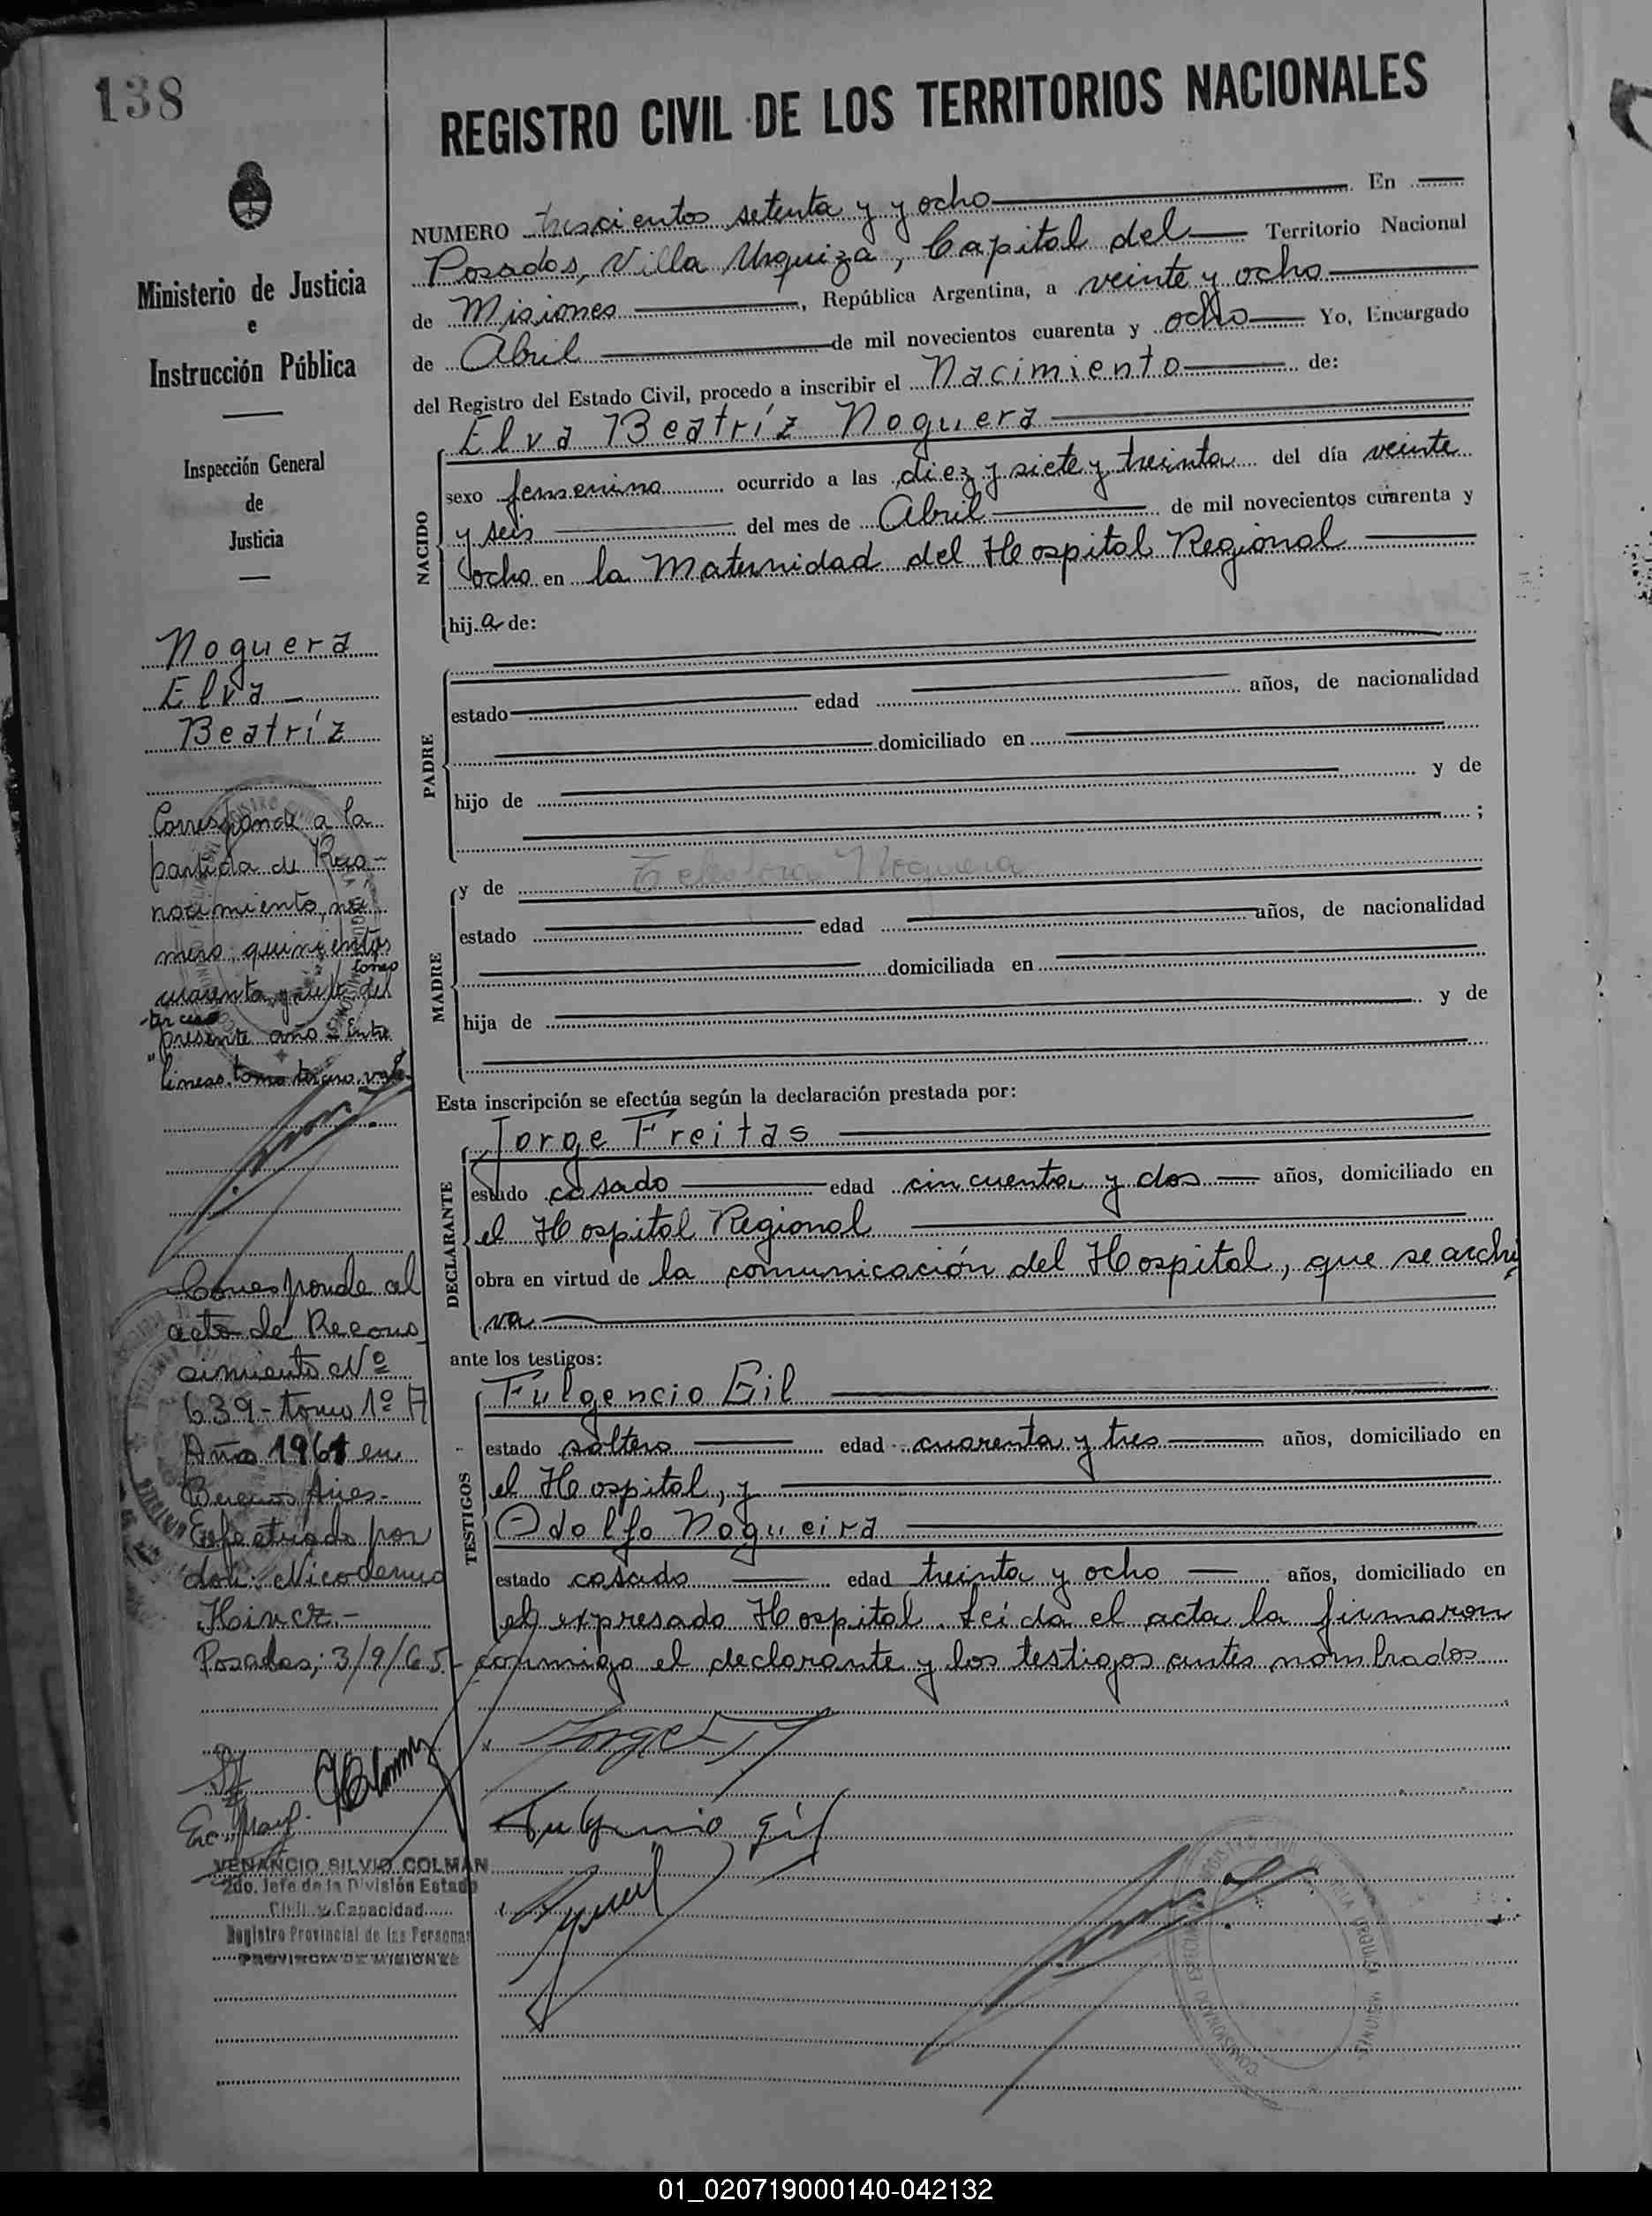 138
REGISTRO CIVIL DE LOS TERRITORIOS NACIONALES
Ministerio de Justicia
e
Instrucción Pública
Inspección General
de
Justicia
Noguera
Elva
Beatríz
Corresponde a la
partida de Reco-
nocimiento, nú
mero quinientos
cuarenta y siete del
tomo
tercero
presente año = Entre
líneas tomo tercero vale
Corresponde al
acta de Recono
cimiento Nº
639 - tomo 1º A
Año 1961 en
Buenos Aires.-
Efectuado por
don: Nicodemo
Posadas; 3/9/65-
VENANCIO SILVIO COLMAN
2do. Jefe de la División Estado
Civil y Capacidad
Registro Provincial de las Personas
PROVINCIA DE MISIONES
NUMERO trescientos setenta y y ocho En
Posadas, Villa Urquiza, Capital del Territorio Nacional
de Misiones, República Argentina, a veinte y ocho
de Abril de mil novecientos cuarenta y ocho Yo, Encargado
del Registro del Estado Civil, procedo a inscribir el Nacimiento de:
NACIDO
Elva Beatríz Noguera
sexo femenino ocurrido a las diez y siete y treinta del día veinte
y seis del mes de Abril de mil novecientos cuarenta y
ocho en la Maternidad del Hospital Regional
hija de:
PADRE
estado edad años, de nacionalidad
domiciliado en
hijo de y de
;
MADRE
y de Telesfora Noguera
estado edad años, de nacionalidad
domiciliada en
hija de y de
Esta inscripción se efectúa según la declaración prestada por:
DECLARANTE
Jorge Freitas
estado casado edad cincuenta y dos años, domiciliado en
el Hospital Regional
obra en virtud de la comunicación del Hospital, que se archi
va
ante los testigos:
TESTIGOS
Fulgencio Gil
estado soltero edad cuarenta y tres años, domiciliado en
el Hospital, y
Adolfo Nogueira
estado casado edad treinta y ocho años, domiciliado en
el expresado Hospital. Leída el acta la firmaron
conmigo el declarante y los testigos antes nombrados
Jorge F
Fulgencio Gil
01_020719000140-042132